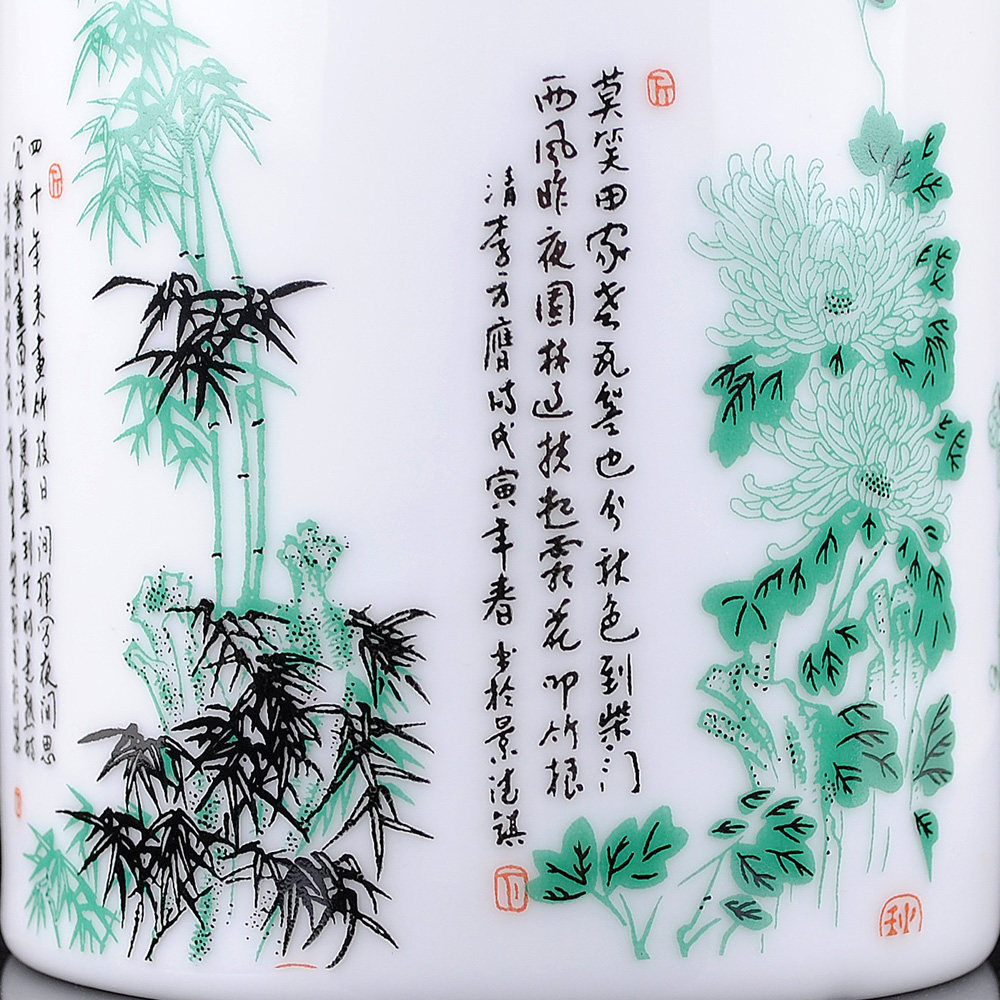 莫笑田家老瓦盆也分秋色到柴门
西风昨夜園林过扶起霜花叩竹根
清李方膺诗戊寅年春书於景德镇
秋
四十年来畫竹枝日间挥写夜间思
冗繁削盡留清瘦畫到生时是熟时